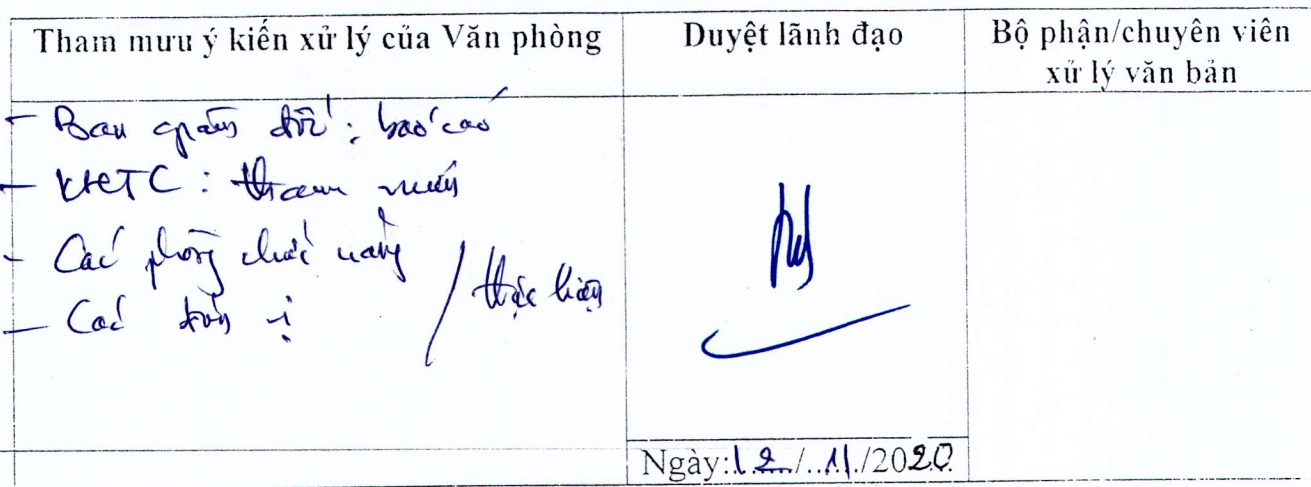 Tham mưu ý kiến xử lý của Văn phòng
Duyệt lãnh đạo
Bộ phận/chuyên viên
xử lý văn bản
- Ban giám đốc: báo cáo
- KHTC: tham mưu
- Các phòng chức năng
- Các đơn vị
/ thực hiện
Ngày: 12/11/2020